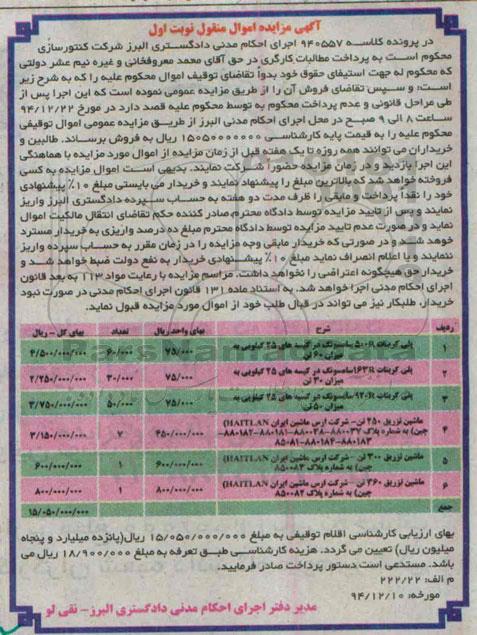 آگهی مزایده اموال منقول نوبت اول
در پرونده کلاسه ۹۴۰۵۵۷ اجرای احکام مدنی دادگستری البرز شرکت کنتورسازی
محکوم است به پرداخت مطالبات کارگری در حق آقای محمد معروفخانی و غیره نیم عشر دولتی
که محکوم له جهت استیفای حقوق خود بدواً تقاضای توقیف اموال محکوم علیه را که به شرح زیر
است؛ و سپس تقاضای فروش آن را از طریق مزایده عمومی نموده است که این اجرا پس از
طی مراحل قانونی و عدم پرداخت محکوم به توسط محکوم علیه قصد دارد در مورخ ۹۴/۱۲/۲۲
ساعت ۸ الی ۹ صبح در محل اجرای احکام مدنی البرز از طریق مزایده عمومی اموال توقیفی
محکوم علیه را به قیمت پایه کارشناسی ۱۵۰۵۰۰۰۰۰۰۰ ریال به فروش برساند. طالبین و
خریداران می توانند همه روزه تا یک هفته قبل از زمان مزایده از اموال مورد مزایده با هماهنگی
این اجرا بازدید و در زمان مزایده حضوراً شرکت نمایند. بدیهی است اموال مزایده به کسی
فروخته خواهد شد که بالاترین مبلغ را پیشنهاد نمایند و خریدار می بایستی مبلغ ۱۰٪ پیشنهادی
خود را نقداً پرداخت و مابقی را ظرف مدت دو هفته به حساب سپرده دادگستری البرز واریز
نمایند و پس از تایید مزایده توسط دادگاه محترم صادر کننده حکم تقاضای انتقال مالکیت اموال
نماید و در صورت عدم تایید مزایده توسط دادگاه محترم مبلغ ده درصد واریزی به خریدار مسترد
خواهد شد و در صورتی که خریدار مابقی وجه مزایده را در زمان مقرر به حساب سپرده واریز
ننمایند و یا اعلام انصراف نماید مبلغ ۱۰٪ پیشنهادی خریدار به نفع دولت ضبط خواهد شد و
خریدار حق هیچگونه اعتراضی را نخواهد داشت. مراسم مزایده با رعایت مواد ۱۱۳ به بعد قانون
اجرای احکام مدنی اجرا خواهد شد. به استناد ماده ۱۳۱ قانون اجرای احکام مدنی در صورت نبود
خریدار، طلبکار نیز می تواند در قبال طلب خود از اموال مورد مزایده قبول نماید.
ردیف شرح تعداد بهای واحد ریال بهای کل - ریال
۱ پلی کربنات ۵۰۰R سامسونگ در کیسه های ۲۵ کیلویی به میزان ۶۰ تن ۶۰/۰۰۰ ۷۵/۰۰۰ ۴/۵۰۰/۰۰۰/۰۰۰
۲ پلی کربنات ۱۶۳R سامسونگ در کیسه های ۲۵ کیلویی به میزان ۳۰ تن ۳۰/۰۰۰ ۷۵/۰۰۰ ۲/۲۵۰/۰۰۰/۰۰۰
۳ پلی کربنات ۹۲۰R سامسونگ در کیسه های ۲۵ کیلویی به میزان ۵۰ تن ۵۰/۰۰۰ ۷۵/۰۰۰ ۳/۷۵۰/۰۰۰/۰۰۰
۴ ماشین تزریق ۲۵۰ تن - شرکت ارس ماشین ایران (HAITLAN چین) به شماره پلاک ۷ ۴۵۰/۰۰۰/۰۰۰ ۳/۱۵۰/۰۰۰/۰۰۰
۵ ماشین تزریق ۳۰۰ تن - شرکت ارس ماشین ایران (HAITLAN چین) به شماره پلاک ۸۵۰۰۸۳ ۱ ۶۰۰/۰۰۰/۰۰۰ ۶۰۰/۰۰۰/۰۰۰
۶ ماشین تزریق ۳۶۰ تن - شرکت ارس ماشین ایران (HAITLAN چین) به شماره پلاک ۸۵۰۰۸۲ ۱ ۸۰۰/۰۰۰/۰۰۰ ۸۰۰/۰۰۰/۰۰۰
جمع ۱۵/۰۵۰/۰۰۰/۰۰۰
بهای ارزیابی کارشناسی اقلام توقیفی به مبلغ ۱۵/۰۵۰/۰۰۰/۰۰۰ ریال (پانزده میلیارد و پنجاه
میلیون ریال) تعیین می گردد. هزینه کارشناسی طبق تعرفه به مبلغ ۱۸/۹۰۰/۰۰۰ ریال می
باشد. مستدعی است دستور پرداخت صادر فرمایید.
م الف: ۲۲۲/۲۲
مورخه: ۹۴/۱۲/۱۰
مدیر دفتر اجرای احکام مدنی دادگستری البرز- تقی لو